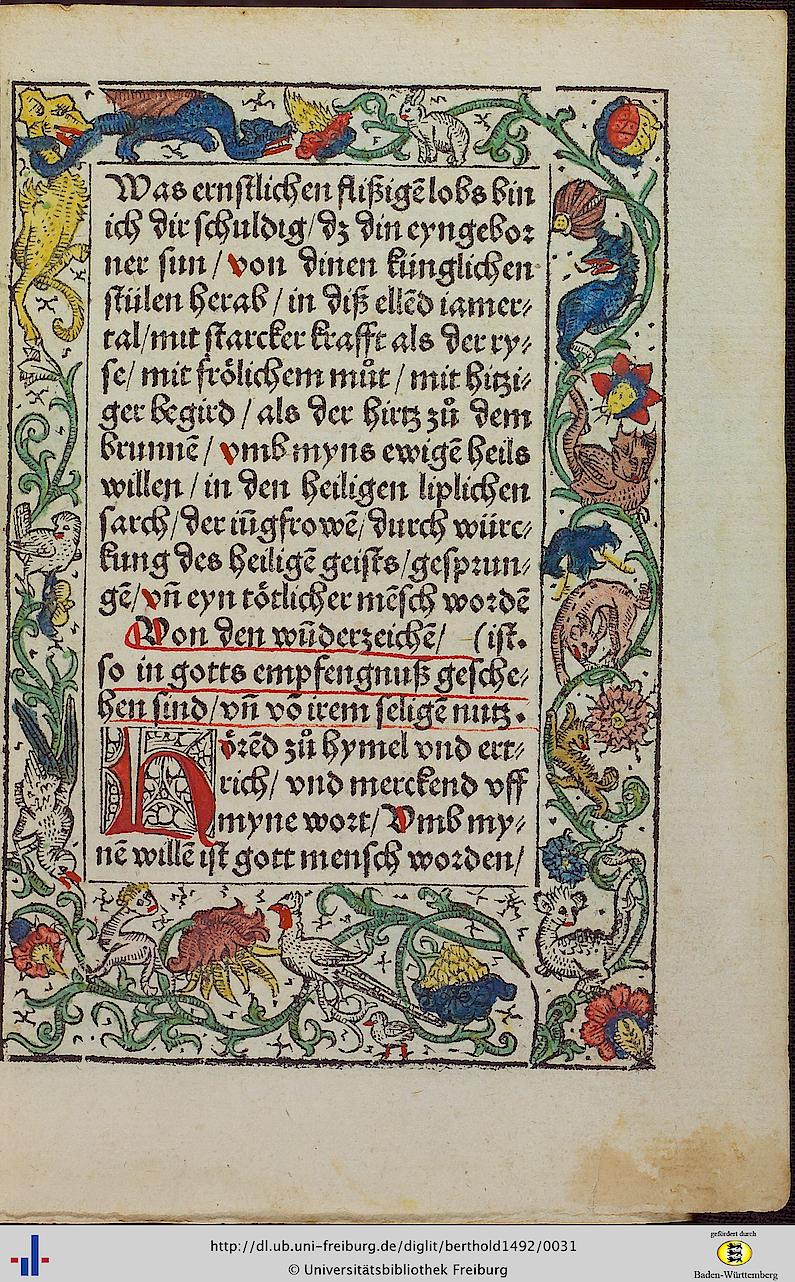 Was ernstlichen flißigē lobs bin
ich dir schuldig/ dz din eyngebor
ner sun / von dinen künglichen
stülen herab / in diß ellēd iamer⸗
tal/mit starcker krafft als der ry⸗
se/ mit frölichem můt / mit hitzi⸗
ger begird / als der hirtz zů dem
brunnē / vmb myns ewigē heils
willen / in den heiligen liplichen
sarch/ der iūgfrowē/ durch würc⸗
kung des heiligē geists/ gesprun⸗
gē/ vn̄ eyn tötlicher mēsch wordē
Von den wūderzeichē/ (ist.
so in gotts empfengnuß gesche⸗
hen sind/ vn̄ vō irem seligē nutz.
Hörēd zů hymel vnd ert⸗
rich/ vnd merckend vff
myne wort/ Vmb my⸗
nē willē ist gott mensch worden/
http://dl.ub.uni-freiburg.de/diglit/berthold1492/0031
© Universitätsbibliothek Freiburg
gefördert durch
Baden-Württemberg